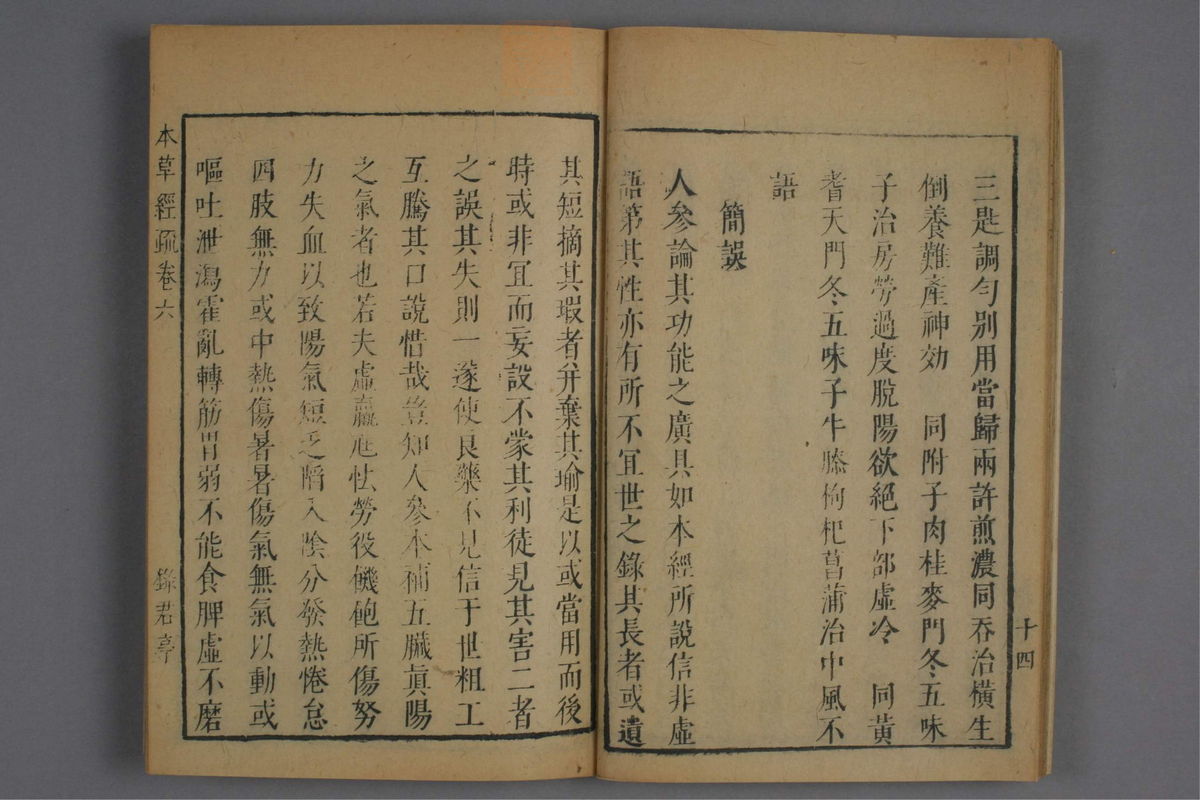 三匙調勻別用當歸兩許煎濃同吞治橫生
倒養難產神効　同附子肉桂麥門冬五味
子治房勞過度脫陽欲絕下部虛冷　同黃
耆天門冬五味子牛膝枸杞菖蒲治中風不
語
簡誤
人參論其功能之廣具如本經所說信非虛
語第其性亦有所不宜世之錄其長者或遺
十四
其短摘其瑕者并棄其瑜是以或當用而後
時或非宜而妄設不蒙其利徒見其害二者
之誤其失則一遂使良藥不見信于世粗工
互騰其口說惜哉豈知人參本補五臟眞陽
之氣者也若夫虛羸尫怯勞役饑飽所傷努
力失血以致陽氣短乏陷入陰分發熱惓怠
四肢無力或中熱傷暑暑傷氣無氣以動或
嘔吐泄瀉霍亂轉筋胃弱不能食脾虛不磨
本草經疏卷六
綠君亭